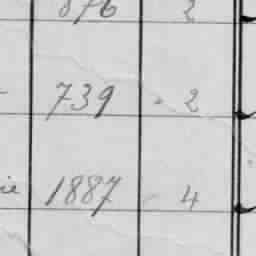 876 2
739 2
ie 1887 4